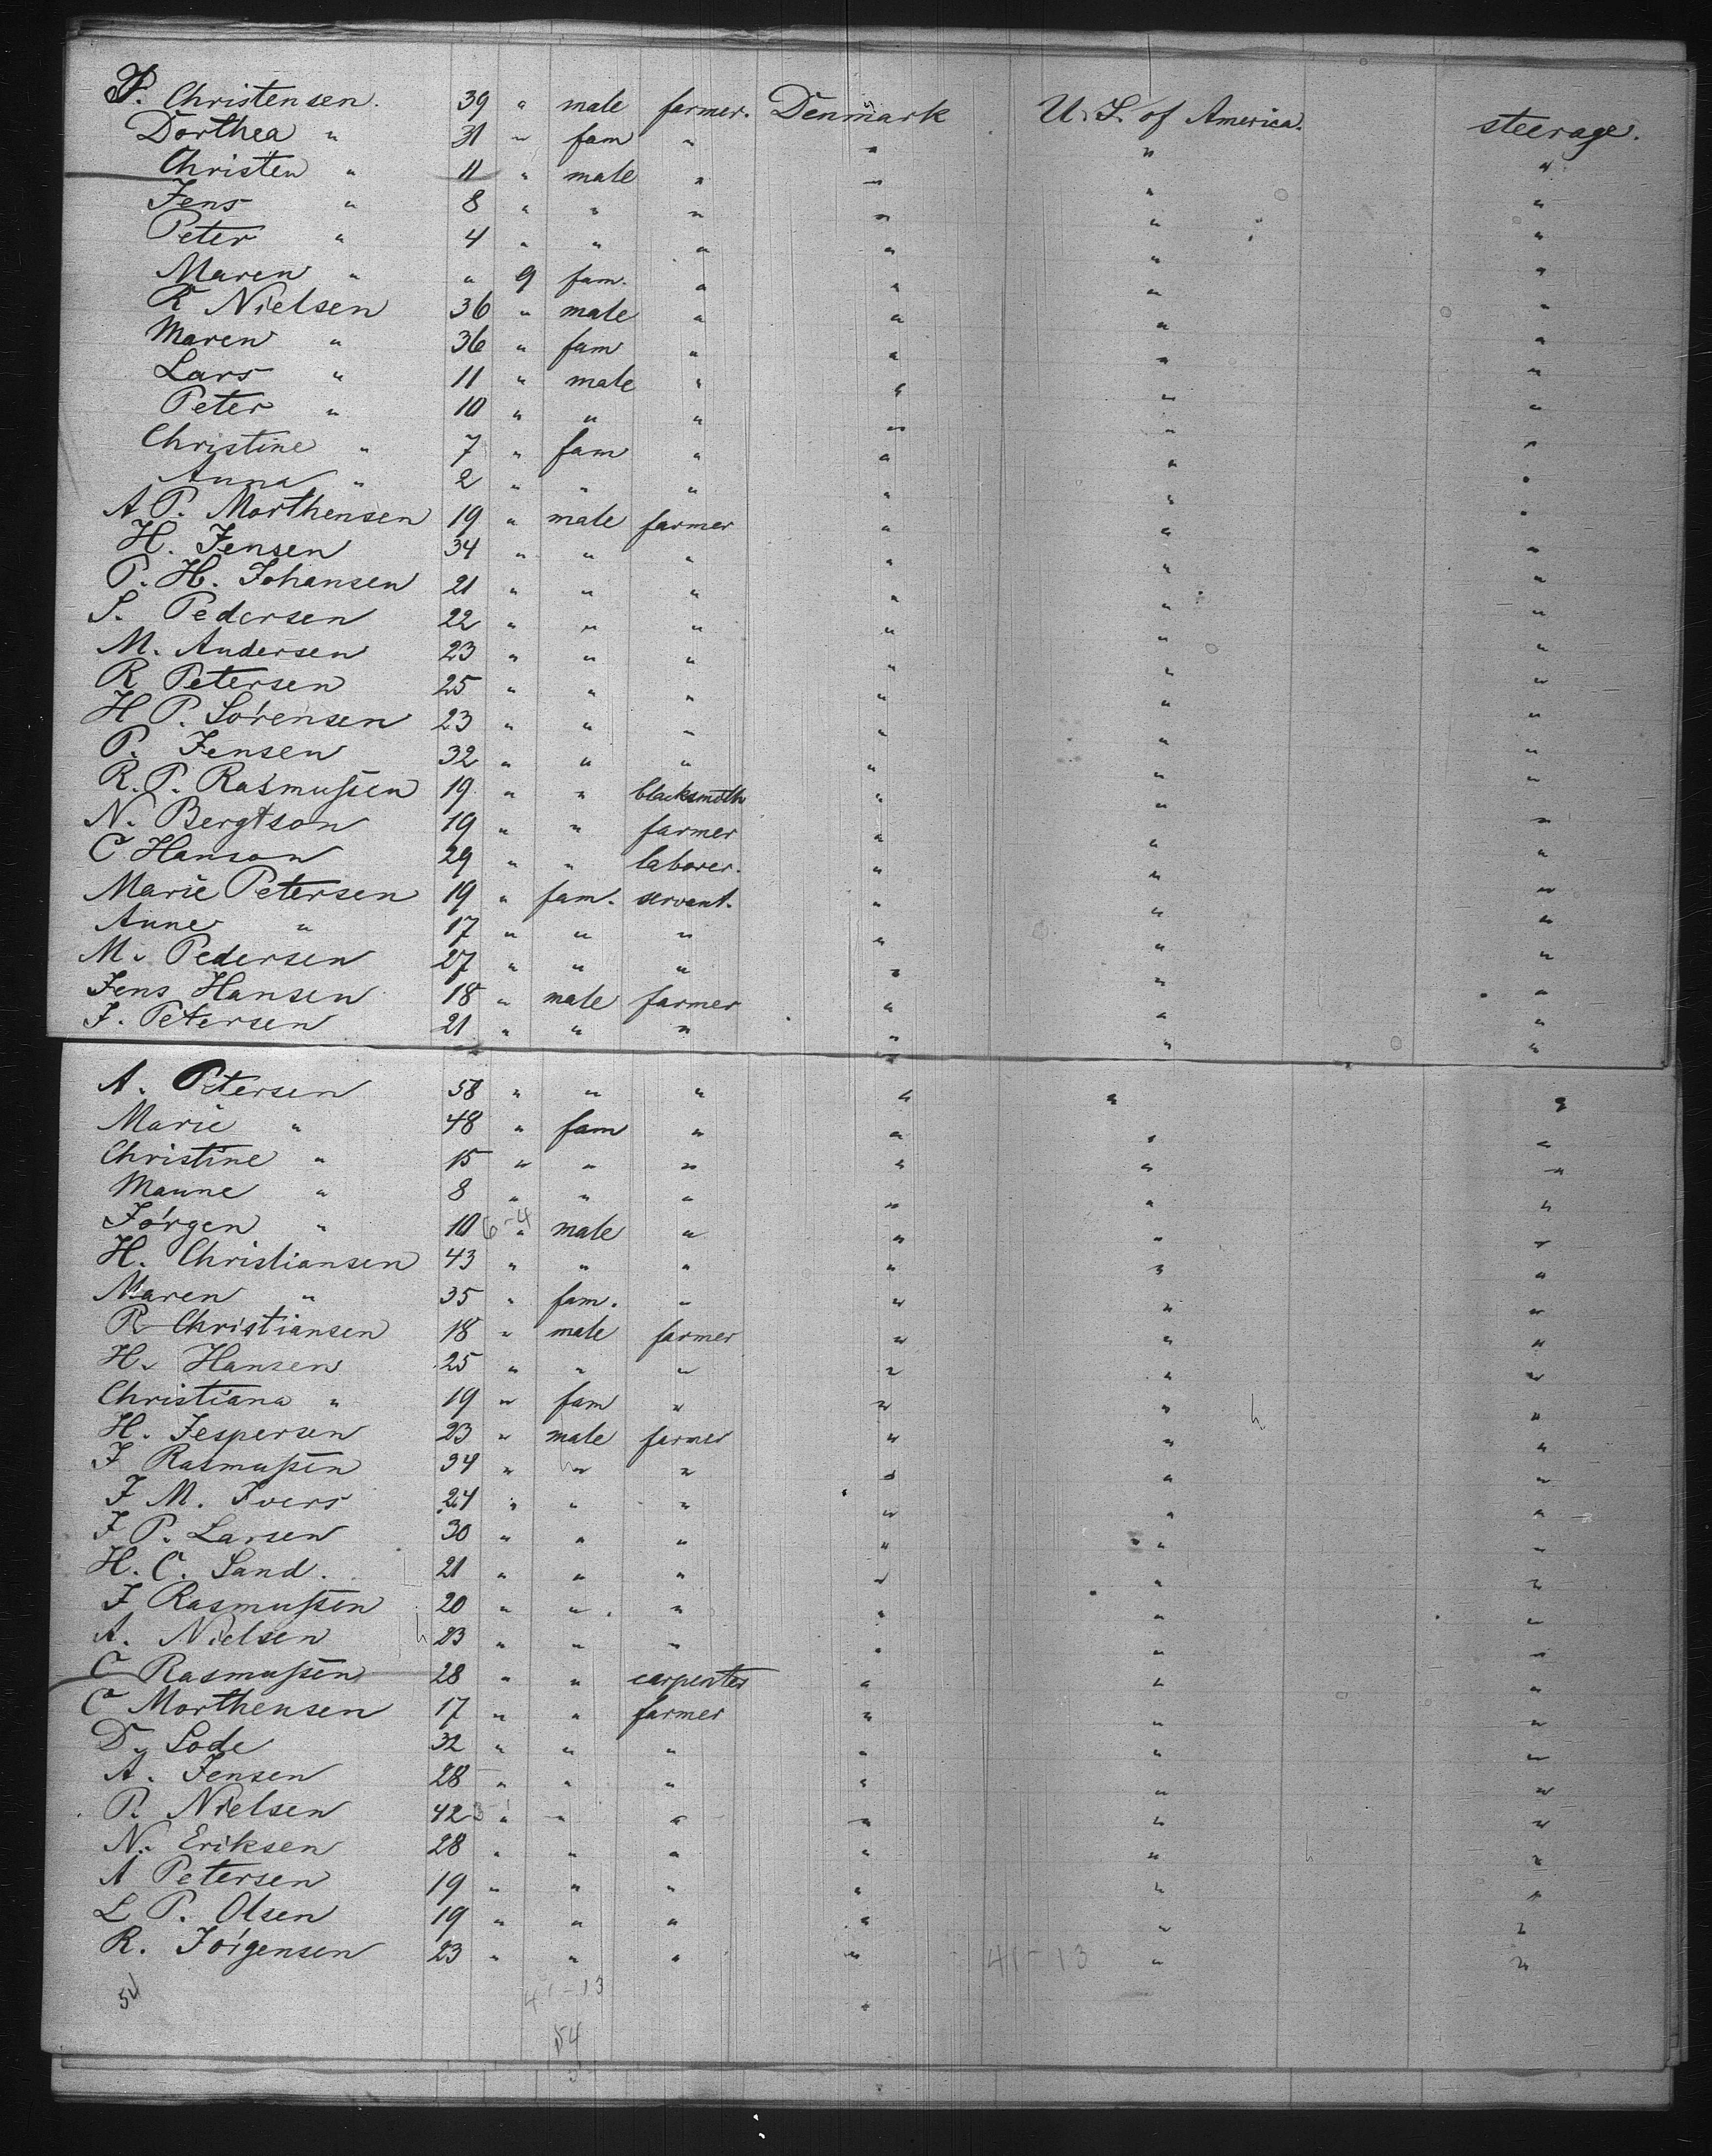 P. Christensen. 39 " male farmer. Denmark U. S. of America. steerage.
Dorthea " 31 " fam " " " "
Christen " 11 " male " " " "
Jens " 8 " " " " " "
Peter " 4 " " " " " "
Maren " " 9 fam. " " " "
R Nielsen 36 " male " " " "
Maren " 36 " fam " " " "
Lars " 11 " male " " " "
Peter " 10 " " " " " "
Christine " 7 " fam " " " "
Anna " 2 " " " " " "
A P. Morthensen 19 " male farmer " " "
H. Jensen 34 " " " " " "
P. H. Johansen 21 " " " " " "
S. Pedersen 22 " " " " " "
M. Andersen 23 " " " " " "
R Petersen 25 " " " " " "
H P. Sörensen 23 " " " " " "
P. Jensen 32 " " " " " "
R. P. Rasmussen 19 " " blacksmith " " "
N. Bergtson 19 " " farmer " " "
C Hanson 29 " " laborer. " " "
Marie Petersen 19 " fam. servant. " " "
Anne " 17 " " " " " "
M. Pedersen 27 " " " " " "
Jens Hansen 18 " male farmer " " "
J. Petersen 21 " " " " " "
A. Petersen 58 " " " " " "
Marie " 48 " fam " " " "
Christine " 15 " " " " " "
Maune " 8 " " " " " "
Jörgen " 10 6-4 " male " " " "
H. Christiansen 43 " " " " " "
Maren " 35 " fam. " " " "
R Christiansen 18 " male farmer " " "
H. Hansen 25 " " " " " "
Christiana " 19 " fam " " " "
H. Jespersen 23 " male farmer " " "
J Rasmussen 34 " " " " " "
J M. Ivers 24 " " " " " "
J P. Larsen 30 " " " " " "
H. C. Sand. 21 " " " " " "
J Rasmussen 20 " " " " " "
A. Nielsen 23 " " " " " "
C Rasmussen 28 " " carpenter " " "
C Morthensen 17 " " farmer " " "
D. Lode 32 " " " " " "
A. Jensen 28 " " " " " "
P. Nielsen 42 " " " " " "
N. Eriksen 28 " " " " " "
A Petersen 19 " " " " " "
L P. Olsen 19 " " " " " "
R. Jörgensen 23 " " " " 41-13 " "
54 41-13
54